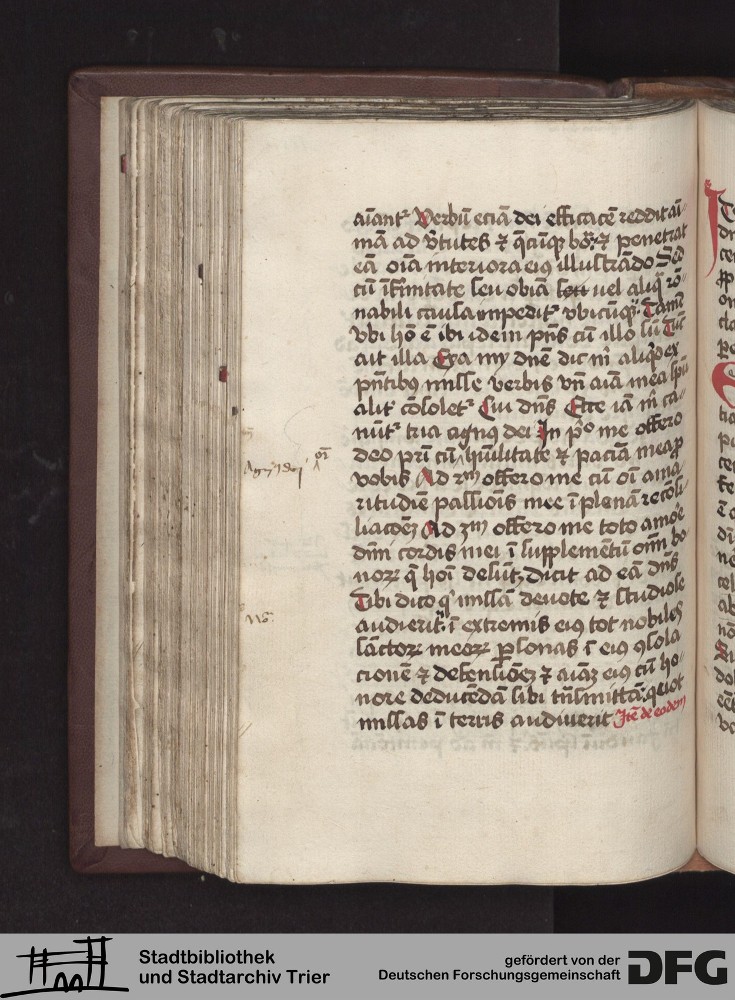 aīant᷑ Verbū eciā dei efficacē reddit aī
mā ad v̄tutes ⁊ q̄cūq̨ boͣ ⁊ penetrat
eā oīa interiora eiꝰ illustrādo Sed
cū īfirmitate seu obiā seu vel aliq̄ rō
nabili causa impedit᷑ vbicūq̨ Tamē
vbi hō ē ibi idem p̄ns cū illo sū Tūc
ait illa Eya my dn̄e dic m̄ aliq̄ ex
pn̄tibꝰ misse verbis vn̄ aīa mea spū
alit᷑ cōsolet᷑ Cui dn̄s Ecce iā m̄ ca
nūt᷑ tria agnꝰ dei In pͦ me offero
deo pr̄i cū hūilitate ⁊ paciā mea ꝓ
vobis Ad 2m offero me cū oī ama
ritudīe passiōis mee ī plenā recōsi
liacōeȝ Ad 3m offero me toto amoē
dīni cordis mei ī supplemētū oīm bo
noꝝ q̄ hoī desūt Dicit ad eā dn̄s
Tibi dico qͥ missā deuote ⁊ studiose
audierit ī extremis eiꝰ tot nobiles
sāctoꝝ meoꝝ ꝑsonas ī eiꝰ ꝯsola
cionē ⁊ defensiōeȝ ⁊ aīaȝ eiꝰ cū ho
nore deducēdā sibi trāsmittā quot
missas ī terris audiuerit Itē de eodem
Agnꝰ dei
Stadtbibliothek
und Stadtarchiv Trier
gefördert von der
Deutschen Forschungsgemeinschaft
DFG